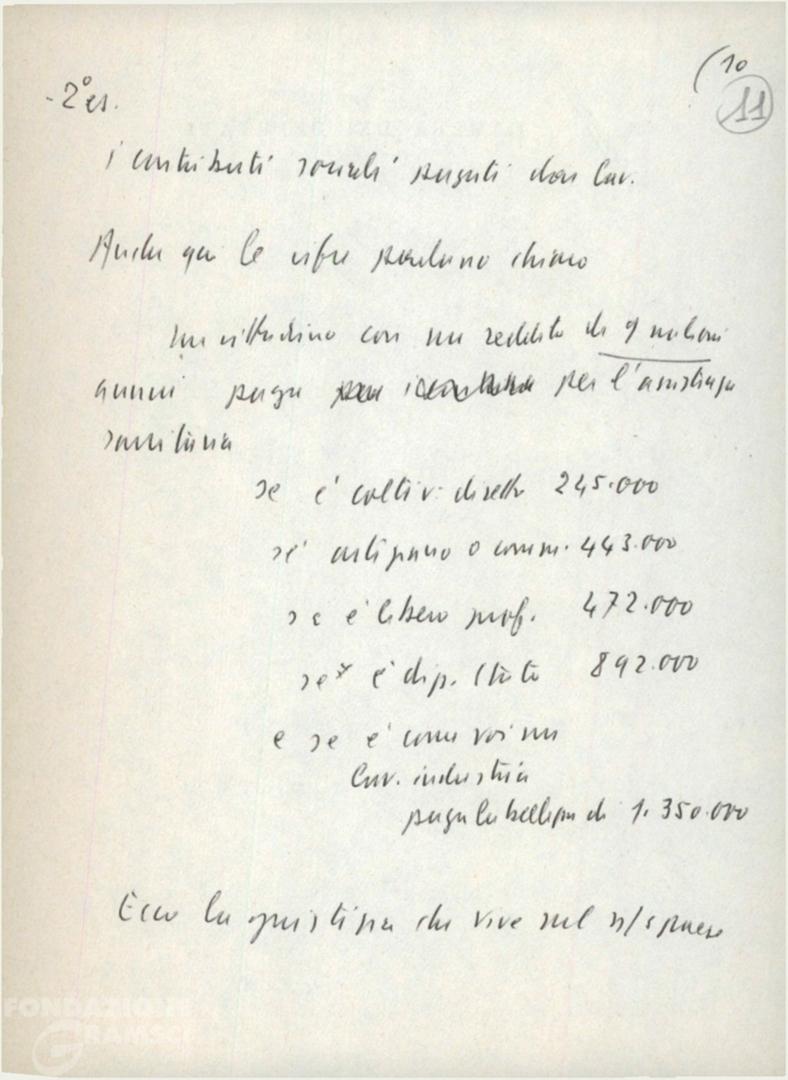 (10
11
- 2° es.
i contributi sociali pagati dai lav.
Anche qui le cifre parlano chiaro
un cittadino con un reddito di 9 milioni
annui paga per l'assistenza
sanitaria
se è coltiv. diretto 245.000
se è artigiano o comm. 443.000
se è libero prof. 472.000
se è dip. Stato 892.000
e se è come voi un
lav. industria
paga la bellezza di 1.350.000
Ecco la giustizia che vive nel n/s paese
FONDAZIONE
GRAMSCI